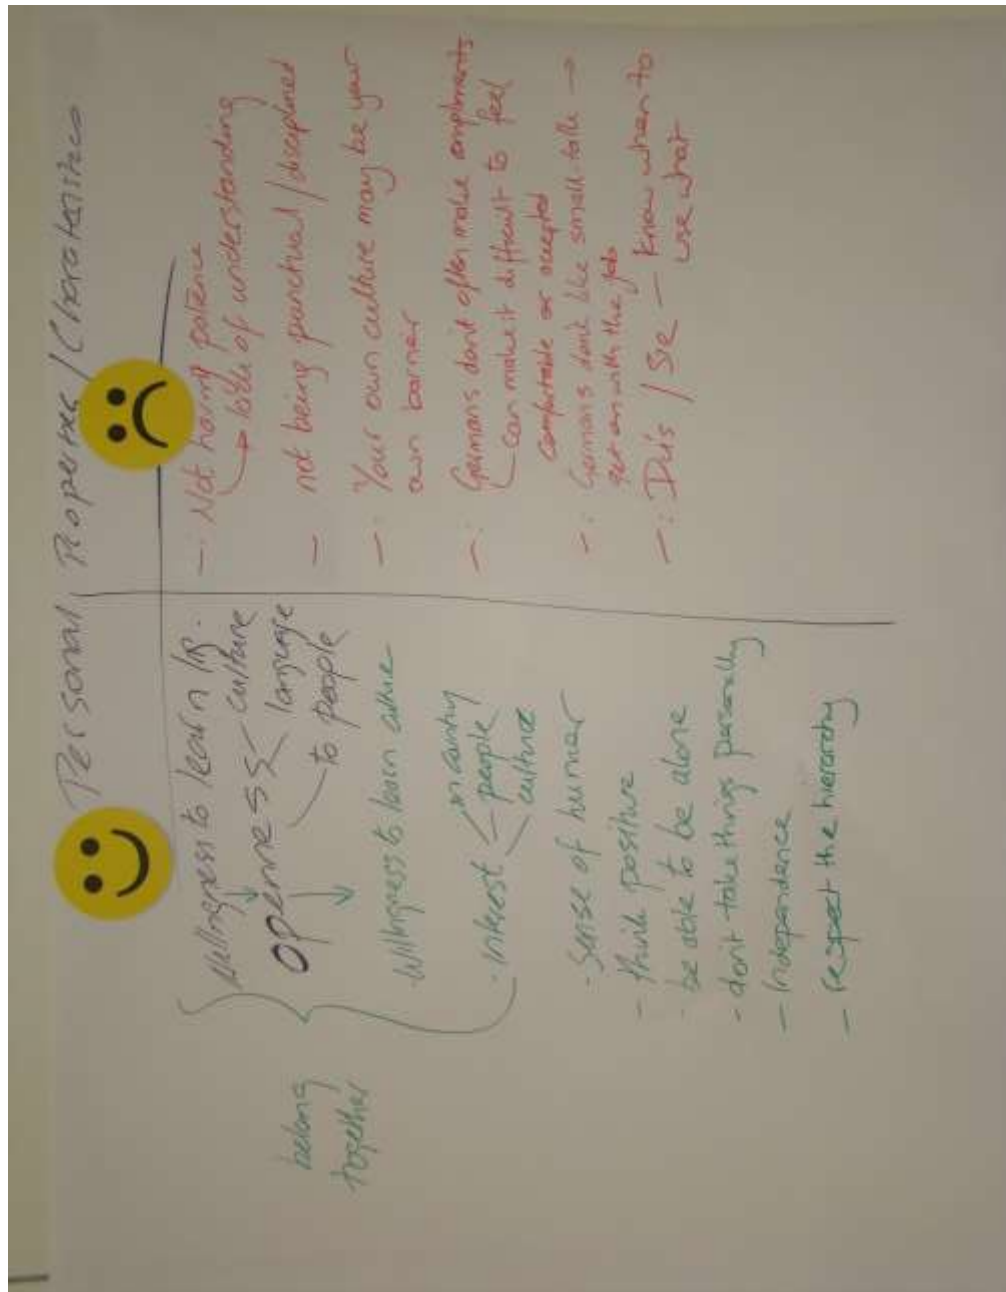 Personal Properties / Charateristics
willingness to learn lg.
openness
culture
language
to people
Willingness to learn culture
- interest
in country
people
culture
- Sense of humor
- think positive
- be able to be alone
- don't take things personally
- Independence
- respect the hierarchy
belong
together
-: Not having patience
lack of understanding
- not being punctual / disciplined
-: Your own culture may be your
own barrier
-: Germans don't often make compliments
can make it difficult to feel
comfortable or accepted
-: Germans don't like small-talk →
get on with the job
-: Du's / Sie - know when to
use what